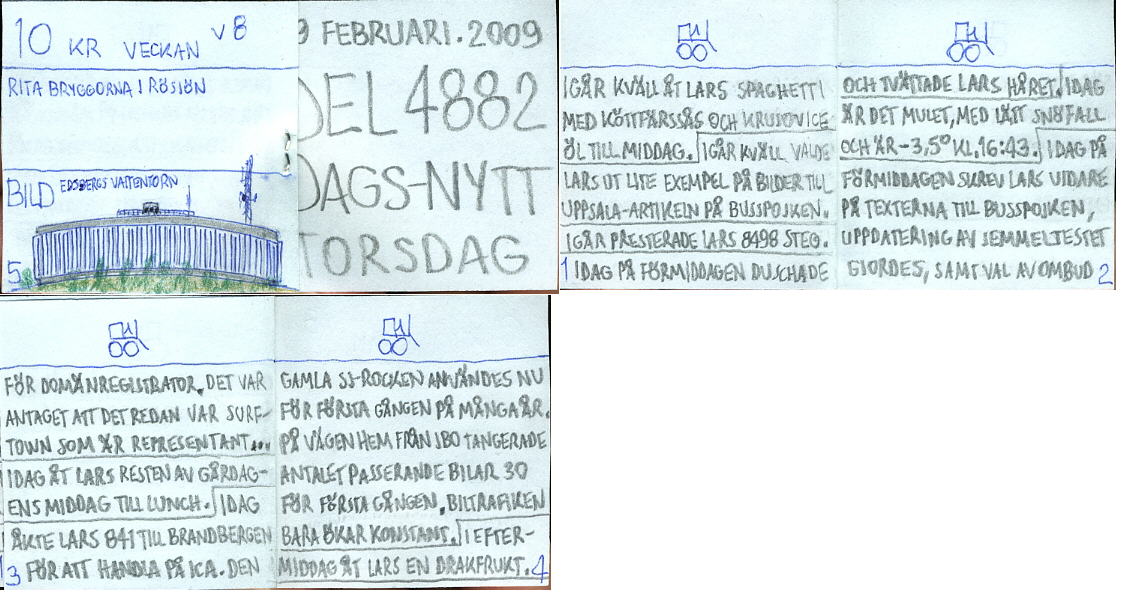 10 KR VECKAN V8
RITA BRYGGORNA I RÖSJÖN
BILD EDSBERGS VATTENTORN
5
9 FEBRUARI. 2009
DEL 4882
DAGS-NYTT
TORSDAG
IGÅR KVÄLL ÅT LARS SPAGHETTI
MED KÖTTFÄRSSÅS OCH KRUSOVICE
ÖL TILL MIDDAG. IGÅR KVÄLL VALDE
LARS UT LITE EXEMPEL PÅ BILDER TILL
UPPSALA-ARTIKELN PÅ BUSSPOJKEN.
IGÅR PRESTERADE LARS 8498 STEG.
1 IDAG PÅ FÖRMIDDAGEN DUSCHADE
OCH TVÄTTADE LARS HÅRET. IDAG
ÄR DET MULET, MED LÄTT SNÖFALL
OCH ÄR -3,5° KL. 16:43. IDAG PÅ
FÖRMIDDAGEN SKREV LARS VIDARE
PÅ TEXTERNA TILL BUSSPOJKEN,
UPPDATERING AV SEMMELTESTET
GJORDES, SAMT VAL AV OMBUD 2
FÖR DOMÄNREGISTRATOR. DET VAR
ANTAGET ATT DET REDAN VAR SURF-
TOWN SOM ÄR REPRESENTANT...
IDAG ÅT LARS RESTEN AV GÅRDAG-
ENS MIDDAG TILL LUNCH. IDAG
ÅKTE LARS 841 TILL BRANDBERGEN
3 FÖR ATT HANDLA PÅ ICA. DEN
GAMLA SJ-ROCKEN ANVÄNDES NU
FÖR FÖRSTA GÅNGEN PÅ MÅNGA ÅR.
PÅ VÄGEN HEM FRÅN IBO TANGERADE
ANTALET PASSERANDE BILAR 30
FÖR FÖRSTA GÅNGEN, BILTRAFIKEN
BARA ÖKAR KONSTANT. I EFTER-
MIDDAG ÅT LARS EN DRAKFRUKT. 4